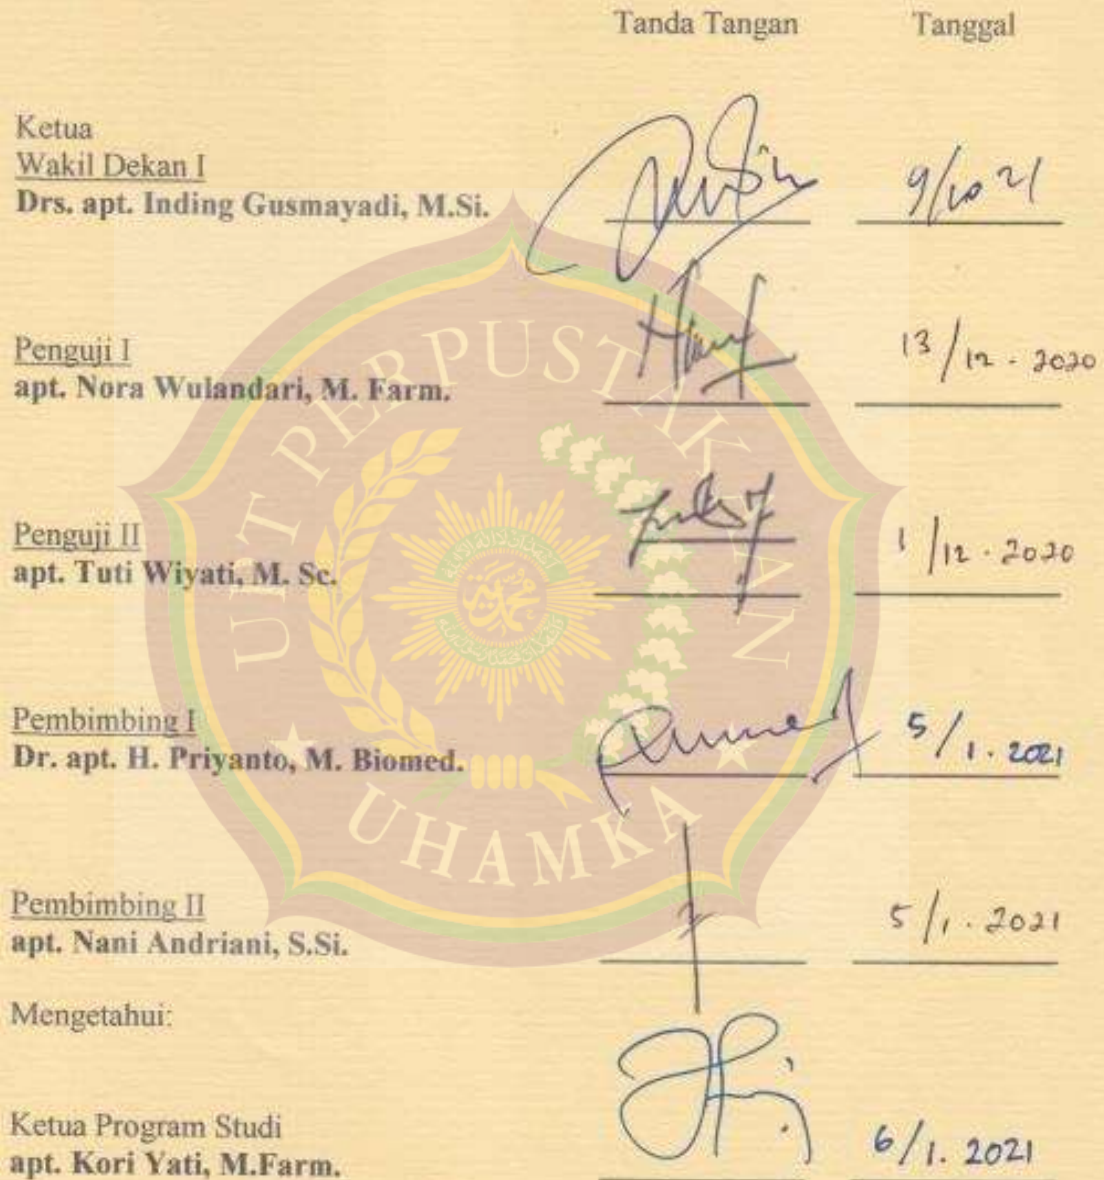 Tanda Tangan Tanggal
Ketua
Wakil Dekan I
Drs. apt. Inding Gusmayadi, M.Si.
Penguji I
apt. Nora Wulandari, M. Farm.
13/12 - 2020
Penguji II
apt. Tuti Wiyati, M. Sc.
1/12 - 2020
Pembimbing I
Dr. apt. H. Priyanto, M. Biomed.
5/1. 2021
Pembimbing II
apt. Nani Andriani, S.Si.
5/1. 2021
Mengetahui:
Ketua Program Studi
apt. Kori Yati, M.Farm.
6/1. 2021
UPT PERPUSTAKAAN
UHAMKA